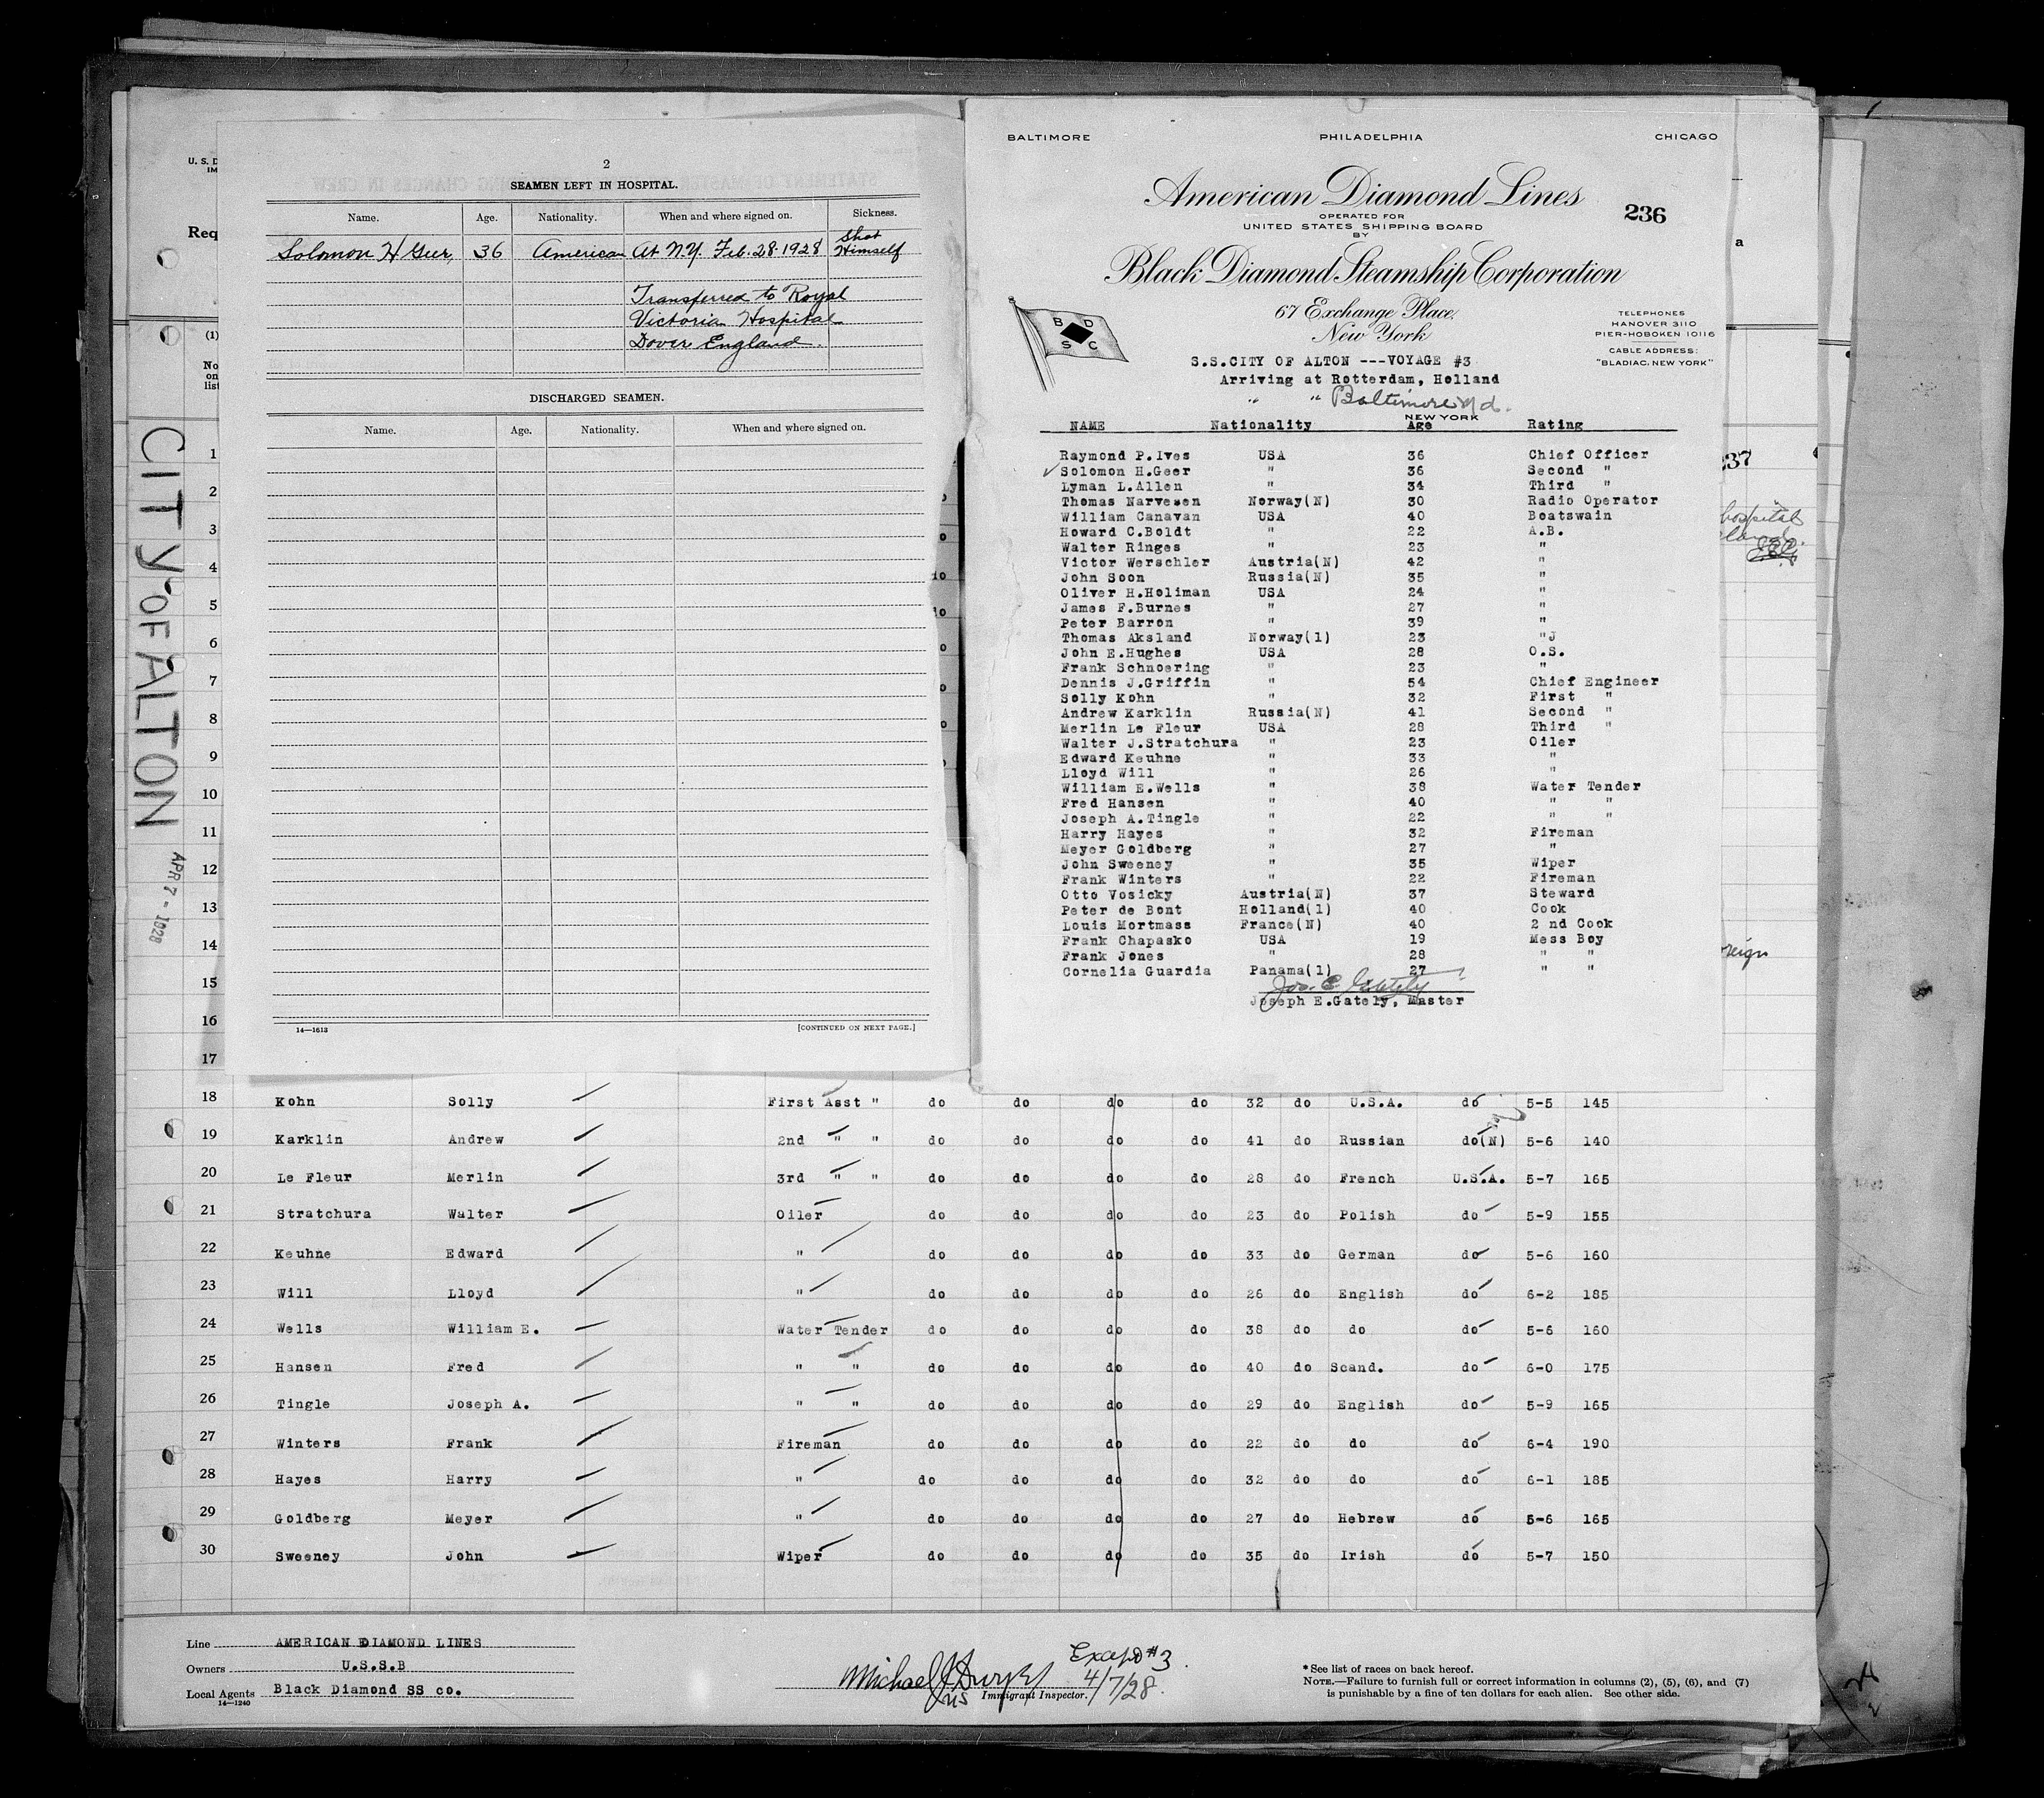 CITY OF ALTON
APR 7 - 1928
U. S. D
IM
Req
(1)
No
on
list
1
2
3
4
5
6
7
8
9
10
11
12
13
14
15
16
17
2
SEAMEN LEFT IN HOSPITAL.
Name. Age. Nationality. When and where signed on. Sickness.
Solomon H Geer, 36 American At N.Y. Feb. 28-1928 Shot Himself
Transferred to Royal
Victoria Hospital
Dover England.
DISCHARGED SEAMEN.
Name. Age. Nationality. When and where signed on.
14—1613 [CONTINUED ON NEXT PAGE.]
BALTIMORE PHILADELPHIA CHICAGO
American Diamond Lines
236
OPERATED FOR
UNITED STATES SHIPPING BOARD
BY
Black Diamond Steamship Corporation
67 Exchange Place,
New York
B D
S C
TELEPHONES
HANOVER 3110
PIER-HOBOKEN 10116
CABLE ADDRESS:
"BLADIAC, NEW YORK"
S.S.CITY OF ALTON ---VOYAGE #3
Arriving at Rotterdam, Holland
" " Baltimore Md.
NEW YORK
NAME Nationality Age Rating
Raymond P.Ives USA 36 Chief Officer
Solomon H.Geer " 36 Second "
Lyman L.Allen " 34 Third "
Thomas Narvesen Norway(N) 30 Radio Operator
William Canavan USA 40 Boatswain
Howard C.Boldt " 22 A.B.
Walter Ringes " 23 "
Victor Werschler Austria(N) 42 "
John Soon Russia(N) 35 "
Oliver H.Holiman USA 24 "
James F.Burnes " 27 "
Peter Barron " 39 "
Thomas Aksland Norway(1) 23 "J
John E.Hughes USA 28 O.S.
Frank Schnoering " 23 "
Dennis J.Griffin " 54 Chief Engineer
Solly Kohn " 32 First "
Andrew Karklin Russia(N) 41 Second "
Merlin Le Fleur USA 28 Third "
Walter J.Stratchura " 23 Oiler
Edward Keuhne " 33 "
Lloyd Will " 26 "
William E.Wells " 38 Water Tender
Fred Hansen " 40 " "
Joseph A.Tingle " 22 " "
Harry Hayes " 32 Fireman
Meyer Goldberg " 27 "
John Sweeney " 35 Wiper
Frank Winters " 22 Fireman
Otto Vosicky Austria(N) 37 Steward
Peter de Bont Holland(1) 40 Cook
Louis Mortmass France(N) 40 2 nd Cook
Frank Chapasko USA 19 Mess Boy
Frank Jones " 28 " "
Cornelia Guardia Panama(1) 27 " "
Jos. E. Gately
Joseph E.Gately, Master
a
237
hospital
reign
18 Kohn Solly First Asst " do do do do 32 do U.S.A. do 5-5 145
19 Karklin Andrew 2nd " " do do do do 41 do Russian do(N) 5-6 140
20 Le Fleur Merlin 3rd " " do do do do 28 do French U.S.A. 5-7 165
21 Stratchura Walter Oiler do do do do 23 do Polish do 5-9 155
22 Keuhne Edward " do do do do 33 do German do 5-6 160
23 Will Lloyd " do do do do 26 do English do 6-2 185
24 Wells William E. Water Tender do do do do 38 do do do 5-6 160
25 Hansen Fred " " do do do do 40 do Scand. do 6-0 175
26 Tingle Joseph A. " " do do do do 29 do English do 5-9 165
27 Winters Frank Fireman do do do do 22 do do do 6-4 190
28 Hayes Harry " do do do do 32 do do do 6-1 185
29 Goldberg Meyer " do do do do 27 do Hebrew do 5-6 165
30 Sweeney John Wiper do do do do 35 do Irish do 5-7 150
Line AMERICAN DIAMOND LINES
Owners U.S.S.B
Local Agents Black Diamond SS co.
14—1240
Except #3
4/7/28
Michael J
Immigrant Inspector.
* See list of races on back hereof.
NOTE.—Failure to furnish full or correct information in columns (2), (5), (6), and (7)
is punishable by a fine of ten dollars for each alien. See other side.